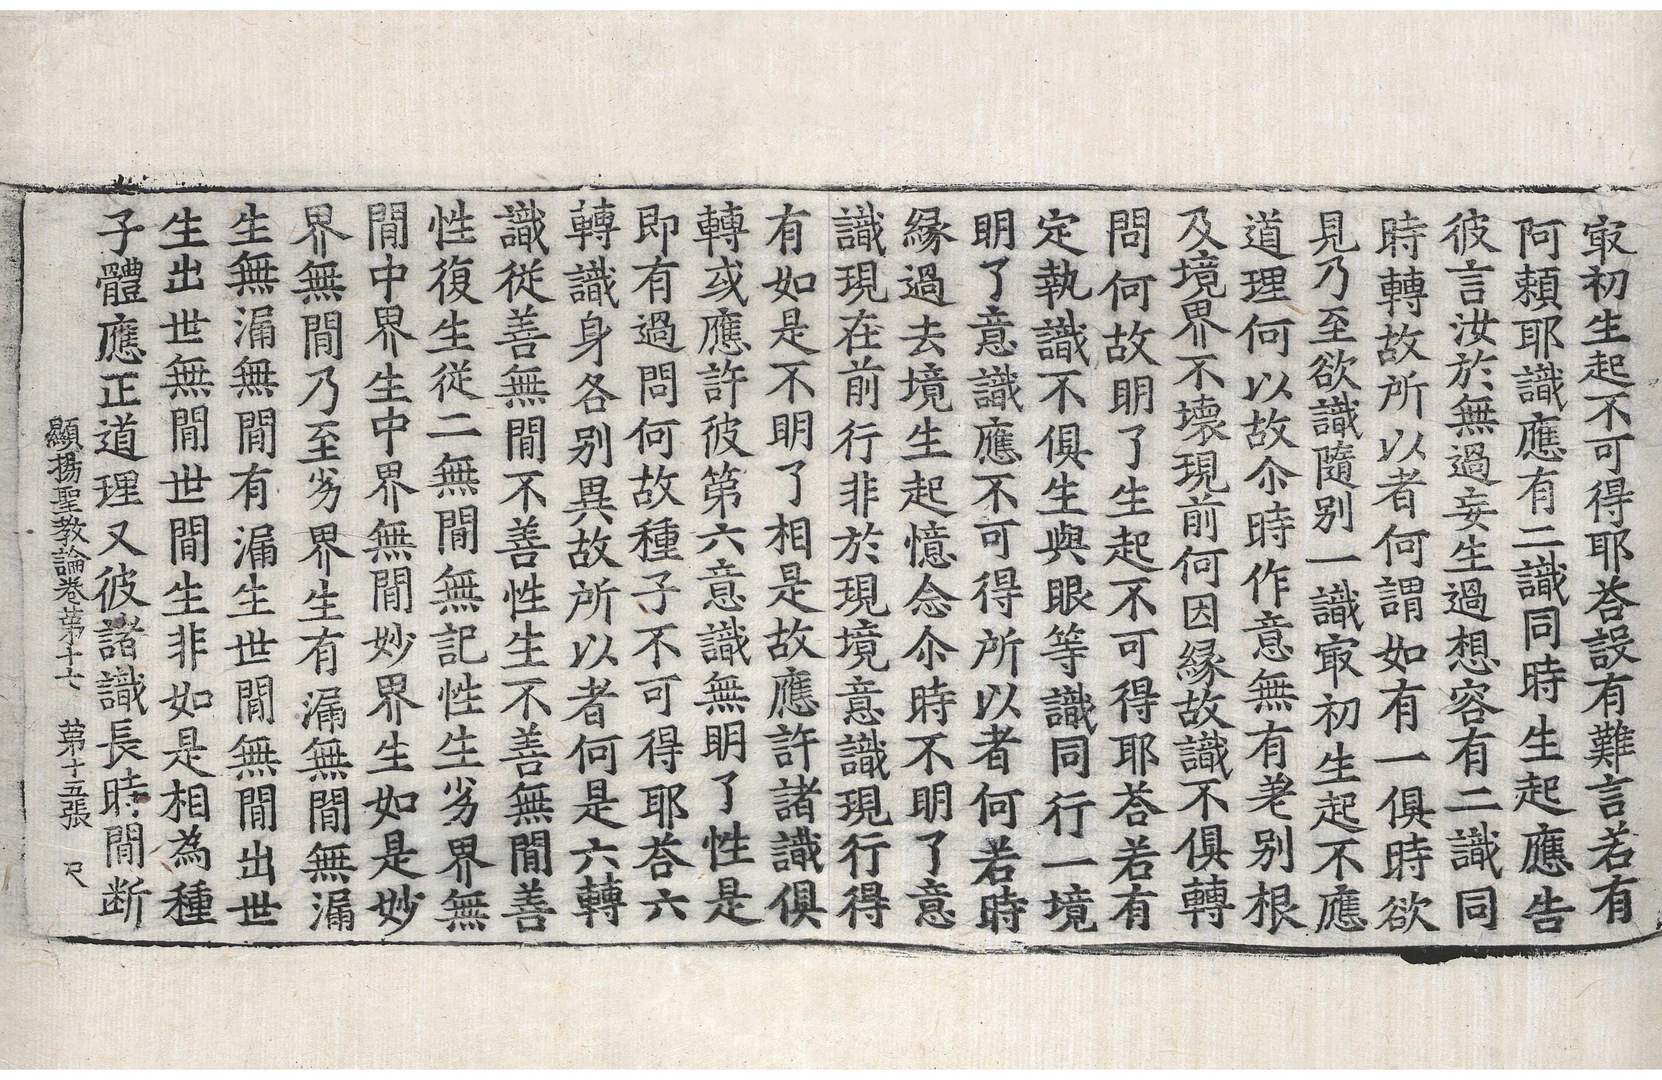 㝡初生起不可得耶荅設有難言若有
阿頼耶識應有二識同時生起應告
彼言汝於無過妄生過想容有二識同
時轉故所以者何謂如有一俱時欲
見乃至欲識隨別一識㝡初生起不應
道理何以故尒時作意無有差別根
及境界不壞現前何因緣故識不俱轉
問何故明了生起不可得耶荅若有
定執識不俱生與眼等識同行一境
明了意識應不可得所以者何若時
緣過去境生起憶念尒時不明了意
識現在前行非於現境意識現行得
有如是不明了相是故應許諸識俱
轉或應許彼第六意識無明了性是
即有過問何故種子不可得耶荅六
轉識身各別異故所以者何是六轉
識從善無間不善性生不善無間善
性復生從二無間無記性生劣界無
間中界生中界無間妙界生如是妙
界無間乃至劣界生有漏無間無漏
生無漏無間有漏生世間無間出世
生出世無間世間生非如是相為種
子體應正道理又彼諸識長時間断
顯揚聖教論卷第十七　第十五張　尺